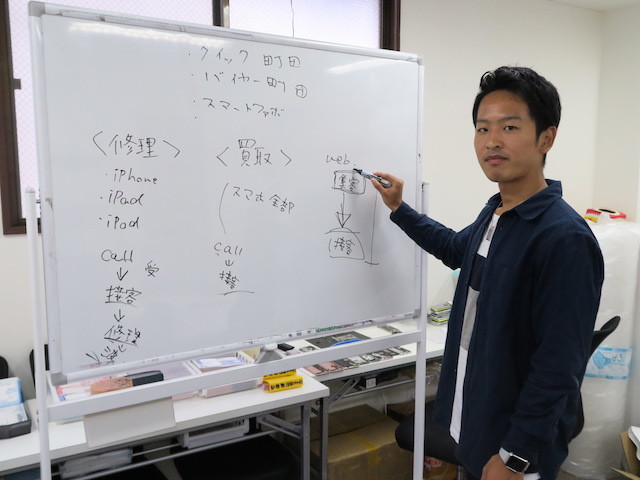 ・クイック 町田
・バイヤー町田
・スマートファボ
<修理>
・iPhone
・iPad
・iPod
call
↓ 受
接客
↓
修理
<買取>
スマホ全部
call
↓
接客
web
集客
↓
接客